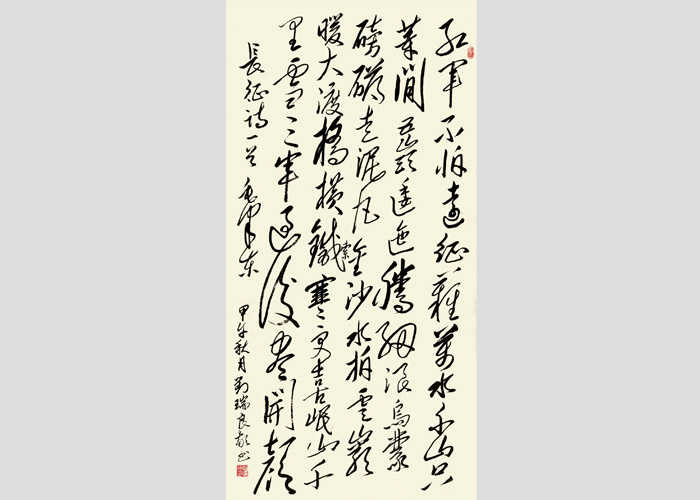 紅軍不怕遠征難萬水千山只
等閒五嶺逶迤騰細浪烏蒙
磅礴走泥丸金沙水拍雲巖
暖大渡橋橫鐵索寒更喜岷山千
里雪三軍過後盡開顏
長征詩一首 毛澤東
甲午秋月劉瑞良敬书